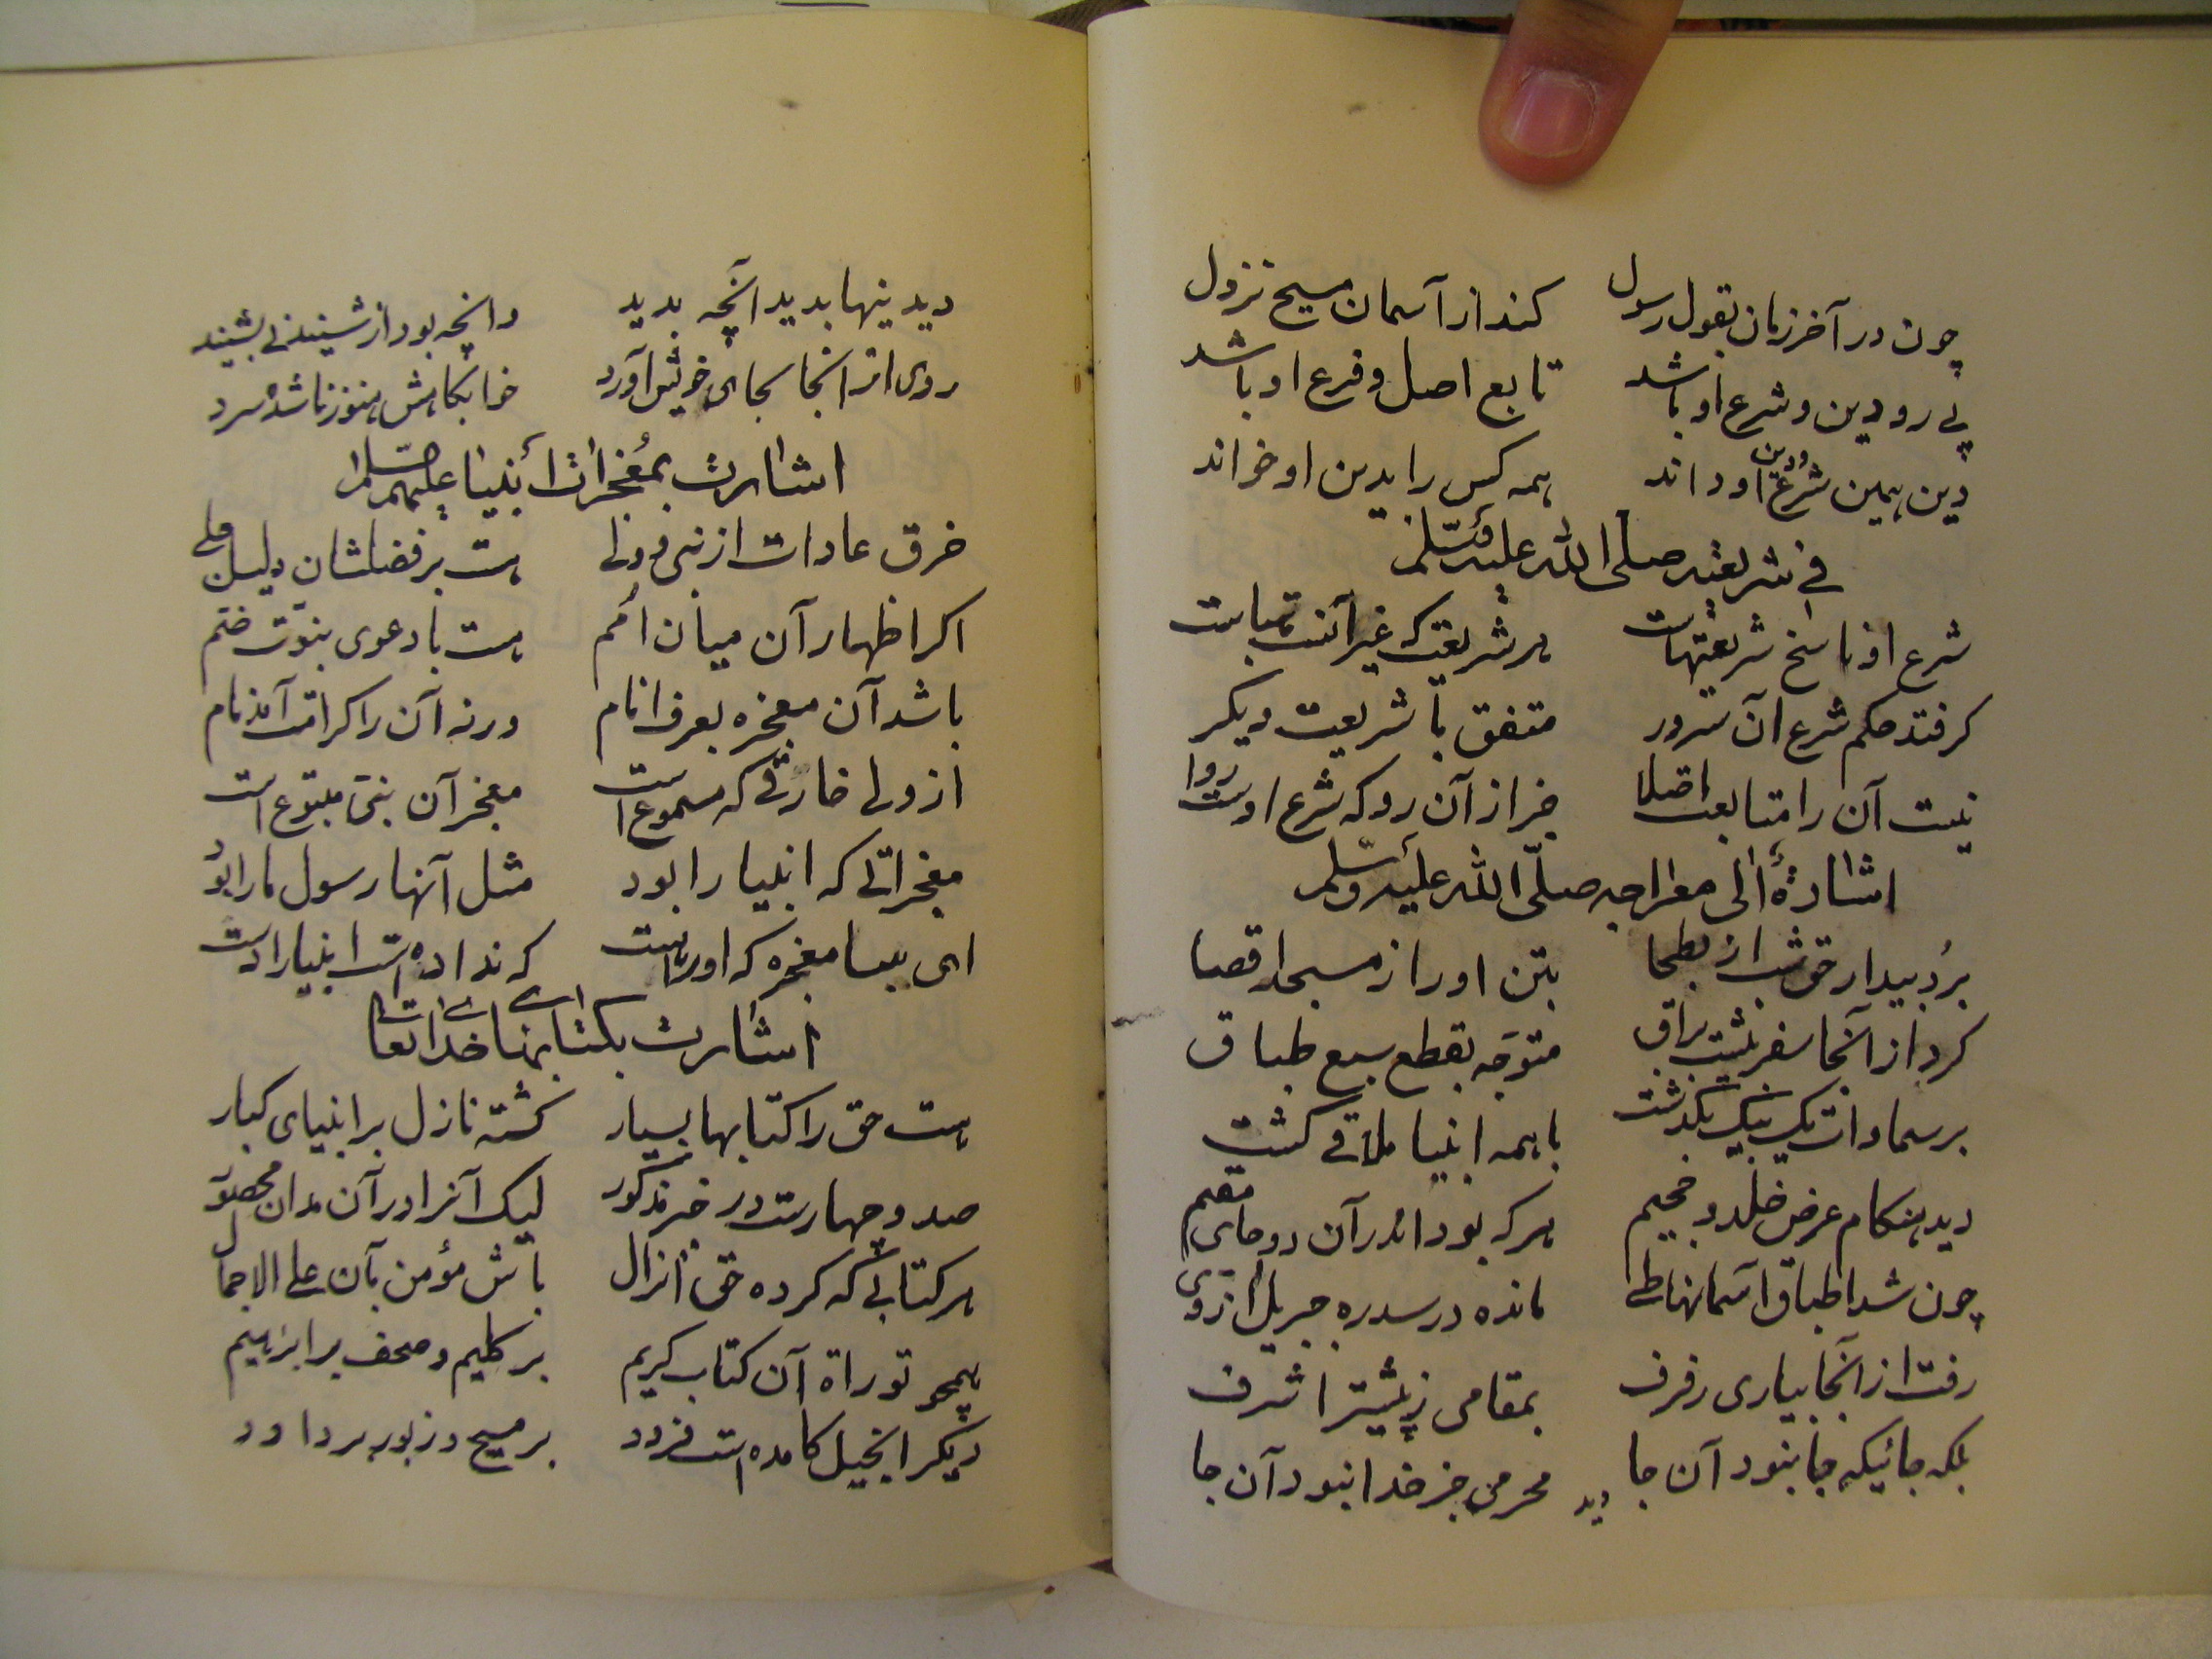 چون در آخر زمان بقول رسول کند از آسمان مسیح نزول
پی رو دین و شرع او باشد تابع اصل و فرع او باشد
دین همین شرع و دین او داند همه کس را بدین او خواند
فی شریعته صلی الله علیه وسلم
شرع او ناسخ شریعتهاست هر شریعت که غیر آنست
کر فتد حکم شرع آن سرور متفق با شریعت دیکر
نیست آن را متابعت اصلا جز از آن رو که شرع اوست روا
اشارة الی معراجه صلی الله علیه وسلم
برد بیدار حق شب از بطحا بتن او را ز مسجد اقصا
کرد از آنجا سفر بپشت براق متوجه بقطع سبع طباق
بر سماوات یک بیک بکذشت با همه انبیا ملاقی کشت
دید هنکام عرض خلد و جحیم هر که بود اندر آن دو جای مقیم
چون شد اطباق آسمانها طی مانده در سدره جبریل از وی
رفت از آنجا بیاری رفرف بمقامی ز پیشتر اشرف
بلکه جائیکه جا نبود آن جا محرمی جز خدا نبود آن جا
دید
دیدنیها بدید آنچه بدید وانچه بود از شنیدنی بشنید
روی از انجا بجای خویش آورد خوابکاهش هنوز ناشده سرد
اشارت بمعجزات انبیا علیهم
خرق عادات از نبی و ولی هست بر فضلشان دلیل جلی
اکر اظهار آن میان امم هست با دعوی نبوت ضم
باشد آن معجزه بعرف انام ورنه آن را کرامت آمد نام
از ولی خارقی که مسموع است معجز آن نبی متبوع است
معجزاتی که انبیا را بود مثل آنها رسول ما را بود
ای بسا معجزه که او راهست که نداده است انبیا را دست
اشارت بکتابهای خدای تعالی
هست حق را کتابها بسیار کشته نازل بر انبیای کبار
صد و چهارست در خبر مذکور لیک آنرا در آن مدان محصور
هر کتابی که کرده حق انزال باش مؤمن بآن علی الاجمال
همچو توراة آن کتاب کریم بر کلیم و صحف بر ابراهیم
دیکر انجیل کامده است فرود بر مسیح و زبور بر داود